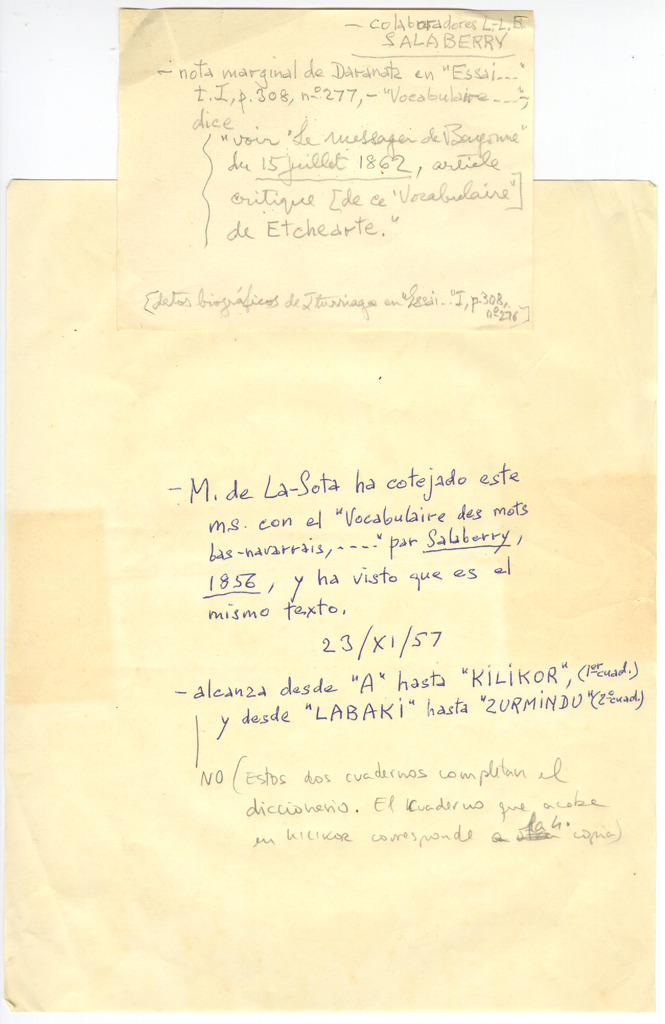 - colaboradores L.-L.B
SALABERRY
- nota marginal de Daranatz en "Essai..."
t. I, p. 308, nº 277, - "Vocabulaire ....",
dice
"voir 'Le messager de Bayonne"
du 15 juillet 1862, article
critique [de ce 'Vocabulaire"]
de Etchearte."
[datos biográficos de Iturriaga en "Essai..." I, p. 308,
nº 276]
- M. de La-Sota ha cotejado este
ms. con el "Vocabulaire des mots
bas-navarrais, ...." par Salaberry,
1856, y ha visto que es el
mismo texto.
23/XI/57
- alcanza desde "A" hasta "KILIKOR", (1er cuad.)
y desde "LABAKI" hasta "ZURMINDU" (2º cuad.)
NO (Estos dos cuadernos completan el
diccionario. El cuaderno que acaba
en KILIKOR corresponde a la 4. copia)